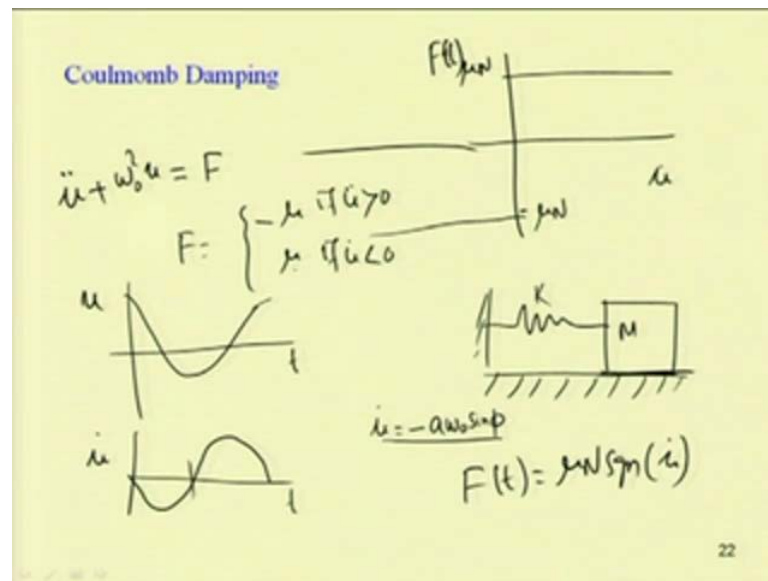 Coulmomb Damping
F(t) μN
ü + ω₀² u = F
u̇
F = { -μ if u̇ > 0
μ if u̇ < 0
- μN
u
t
K
M
u̇ = -aω₀ sinφ
u̇
t
F(t) = μN sgn(u̇)
22